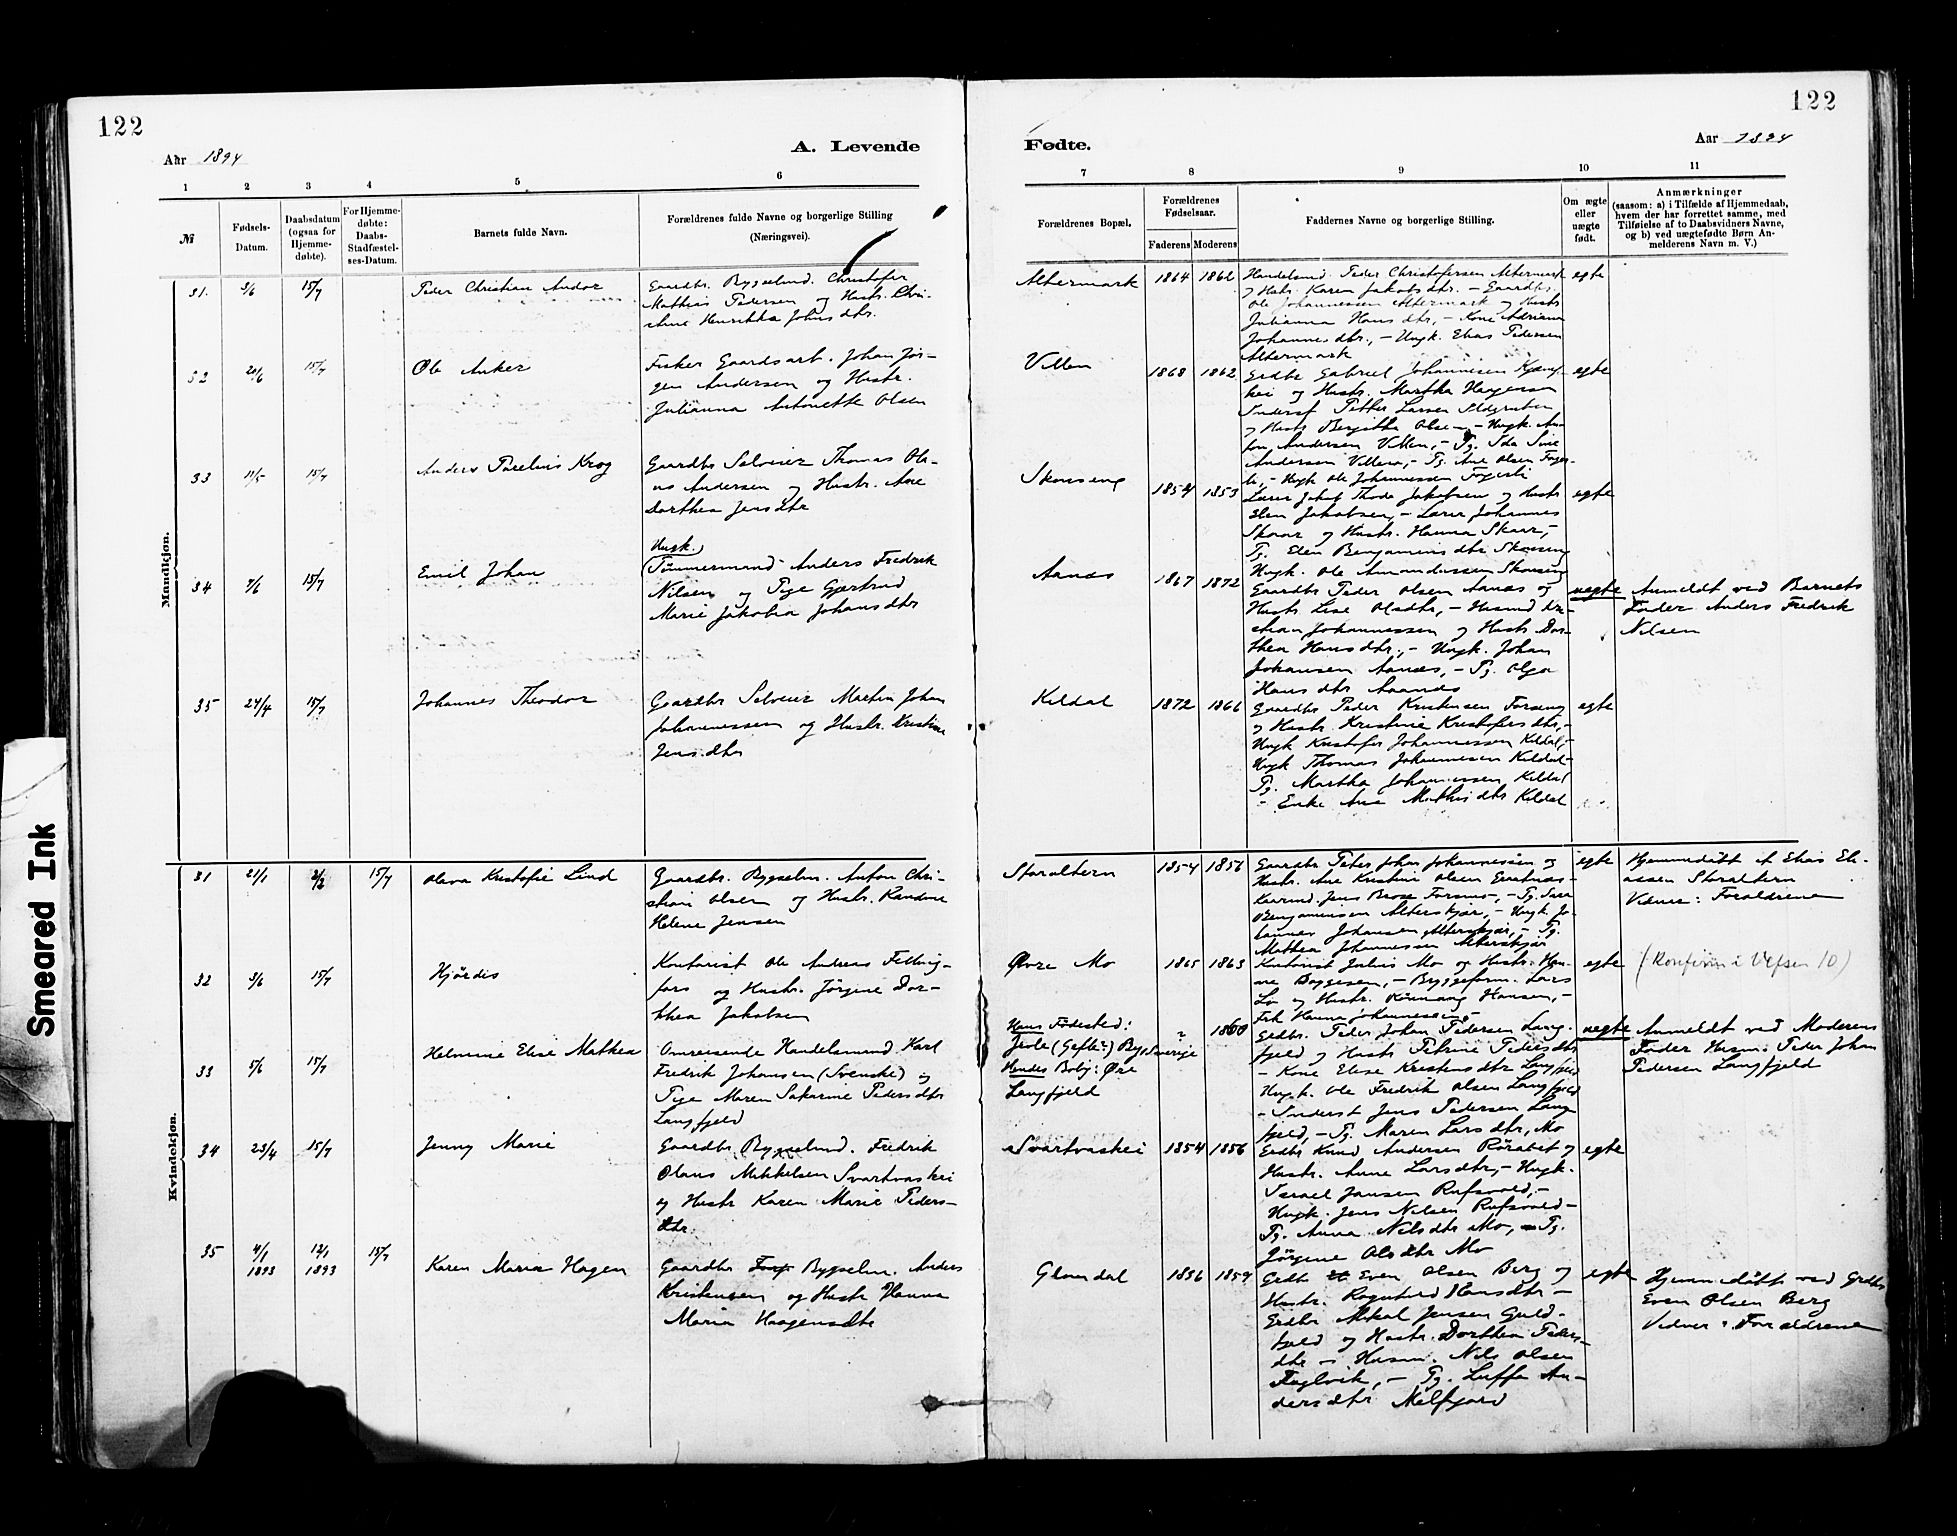 122
122
Aar 1894
A. Levende
Fødte.
Aar 1894
1
2
3
4
5
6
7
8
9
10
11
№
Fødsels-
Datum.
Daabsdatum
(ogsaa for
Hjemme-
døbte).
For Hjemme-
døbte:
Daabs-
Stadfæstel-
ses-Datum.
Barnets fulde Navn.
Forældrenes fulde Navne og borgerlige Stilling
(Næringsvei).
Forældrenes Bopæl.
Forældrenes
Fødselsaar.
Faderens
Moderens
Faddernes Navne og borgerlige Stilling.
Om ægte
eller
uægte
født.
Anmærkninger
(saasom: a) i Tilfælde af Hjemmedaab,
hvem der har forrettet samme, med
Tilføielse af to Daabsvidners Navne,
og b) ved uægtefødte Børn An-
melderens Navn m. V.)
Mandkjøn.
31.
3/6
15/7
Peder Christian Andor
Gaardbr. Bygselmd. Christofer
Mathias Pedersen og Hustr.
Henrikka Johnsdtr.
Altermark
1864
1862
Handelsmd. Peder Christofersen Altermark
og Hustr. Karen Jakobsdtr. - Gaardbr.
Ole Johannessen Altermark og Hustr
Julianna Hansdtr, - Kone Adriana
Johannesdtr, - Ungk. Elias Pedersen
Altermark
egte
20/6
15/7
Ole Anker
Fisker Gaardsarb. Johan Jør-
gen Andersen og Hustr.
Julianna Antonette Olsen
Villen
1868
1862
Grdbr Gabriel Johannesen
og Hustr. Martha Haagensen
Inderst Petter Larsen
og Hustr Bergitha Olsen - Ungk. An-
Andersen Villen, - Pg. Ida
Andersen - Pg. Ane Olsen
Ungk Ole Johannessen
egte
33
11/5
15/7
Anders Krog
Gaardbr Selveier Thomas Ole-
us Andersen og Hustr. Ane
Dorthea Jensdtr
Skonseng
1854
1853
Lærer Thode Jakobsen og Hustr
Elen Jakobsen, - Lærer Johannes
Skaar og Hustr. Hanna Skaar, -
Pg. Elen Benjaminsdtr Skonseng
Ungk. Ole Amundsen Skonseng
egte
34
7/6
15/7
Emil Johan
Ungk.
Tømmermand Anders Fredrik
Nilsen og Pige Gjertrud
Marie Jakobea Johansdtr
Aanæs
1867
1872
Gaardbr Peder Olsen Aanæs og
Hustr Lise Olsdtr, - Husmd Kri-
stian Johannessen og Hustr Dor-
thea Hansdtr, - Ungk. Johan
Johansen Aanæs, - Pg. Olga
Hansdtr Aanæs
uegte
Anmeldt ved Barnets
Fader Anders Fredrik
Nilsen
35
24/4
15/7
Johannes Theodor
Gaardbr Selveier Martin Johan
Johannessen og Hustr. Kristine
Jensdtr
Kildal
1872
1866
Gaardbr Peder Kristensen Forseng
og Hustr. Kristine Kristofersdtr, -
Ungk Kristofer Johannessen Kildal, -
Ungk Thomas Johannesen Kildal -
Pg. Martha Johannessen Kildal
- Enke Ane Mathisdtr Kildal
egte
Kvindekjøn.
31
21/1
2/2
15/7
Olava Kristofie Lind
Gaardbr. Bygselm. Anton Chri-
stian Olsen og Hustr. Randine
Helene Jensen
Storaltern
1854
1856
Gaardbr Peter Johan Johannessen og
Hustr. Ane Kristine Olsen
Jens Forsmo, - Pg.
Benjaminsen Alterskjær, - Ungk. Jo-
hannes Johansen Alterskjær, - Pg.
Mathea Johannessen Alterskjær
egte
Hjemmedøbt af Elias Eli-
assen Storaltern
Vidner: Forældrene
32
3/6
15/7
Hjørdis
Kontorist Ole Andreas Felling-
fors og Hustr. Jørgine Dor-
thea Jakobsen
Øvre Mo
1865
1863
Kontorist Julius Mo og Hustr. Han-
ne Baggesen, - Byggeform. Lars
Lo og Hustr. Hansen, -
Frk Hanna Johannessen
egte
(Konfirm i Vefsen 10)
33
5/6
15/7
Helmine Elise Mathea
Omreisende Handelsmand Karl
Fredrik Johansen (Svenske) og
Pige Maren Sakarine Pedersdtr
Langfjeld
Hans Fødested:
Jevle (Gefle?) By, Sverige
Hendes Bobj: Øvre
Langfjeld
?
1860
Grdbr. Peder Johan Pedersen Lang-
fjeld og Hustr Petrine Pedersdtr
- Kone Elise Kristensdtr Langfjeld
Ungk. Ole Fredrik Olsen Langfjeld
- Inderst Jens Pedersen Lang-
fjeld, - Pg. Maren Larsdtr, Mo
uegte
Anmeldt ved Moderens
Fader Husm. Peder Johan
Pedersen Langfjeld
34
23/4
15/7
Jenny Marie
Gaardbr Bygselmd. Fredrik
Olaus Mikkelsen Svartvashei
og Hustr Karen Marie Peders-
dtr.
Svartvashei
1854
1856
Grdbr Knud Andersen og
Hustr. Anne Larsdtr, - Ungk.
Israel Jansen Rufsvold, -
Ungk. Jens Nilsen Rufsvold -
Pg. Anna Nilsdtr Mo, - Pg.
Jørgine Olsdtr Mo
egte
35
4/1
1893
12/1
1893
15/7
Karen Maria Hagen
Gaardbr Bygselm. Anders
Kristensen og Hustr Hanna
Maria Haagensdtr
Glomdal
1856
1859
Grdbr Even Olsen Berg og
Hustr. Ragnhild Hansdtr -
Grdbr. Mikal Jensen Guld-
fjeld og Hustr. Dorthea Peders-
dtr - Husm. Nils Olsen
Fuglvik, - Pg. An-
dersdtr Melfjord
egte
Hjemmedøbt ved Grdbr
Even Olsen Berg
Vidner: Forældrene
Smeared Ink